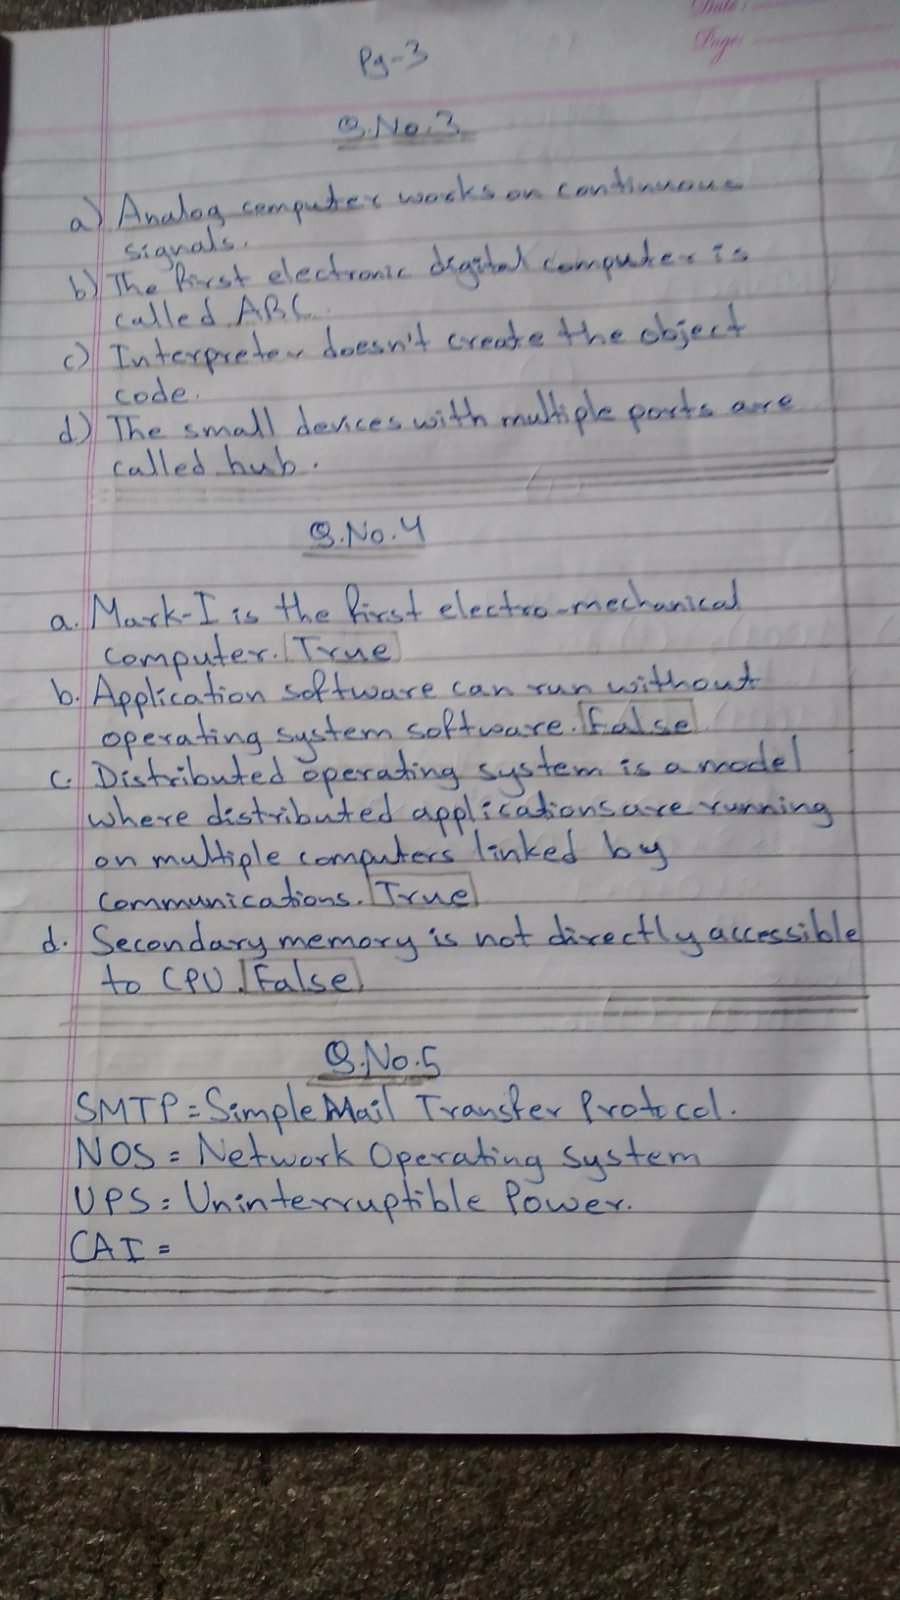 Date:
Page:
Pg-3
Q.No.3
a) Analog computer works on continuous
signals.
b) The first electronic digital computer is
called ABC.
c) Interpreter doesn't create the object
code.
d) The small devices with multiple ports are
called hub.
Q.No.4
a. Mark-I is the first electro-mechanical
computer. True
b. Application software can run without
operating system software. False
c. Distributed operating system is a model
where distributed applications are running
on multiple computers linked by
communications. True
d. Secondary memory is not directly accessible
to CPU. False
Q.No.5
SMTP = Simple Mail Transfer Protocol.
NOS = Network Operating System
UPS = Uninterruptible Power.
CAI =